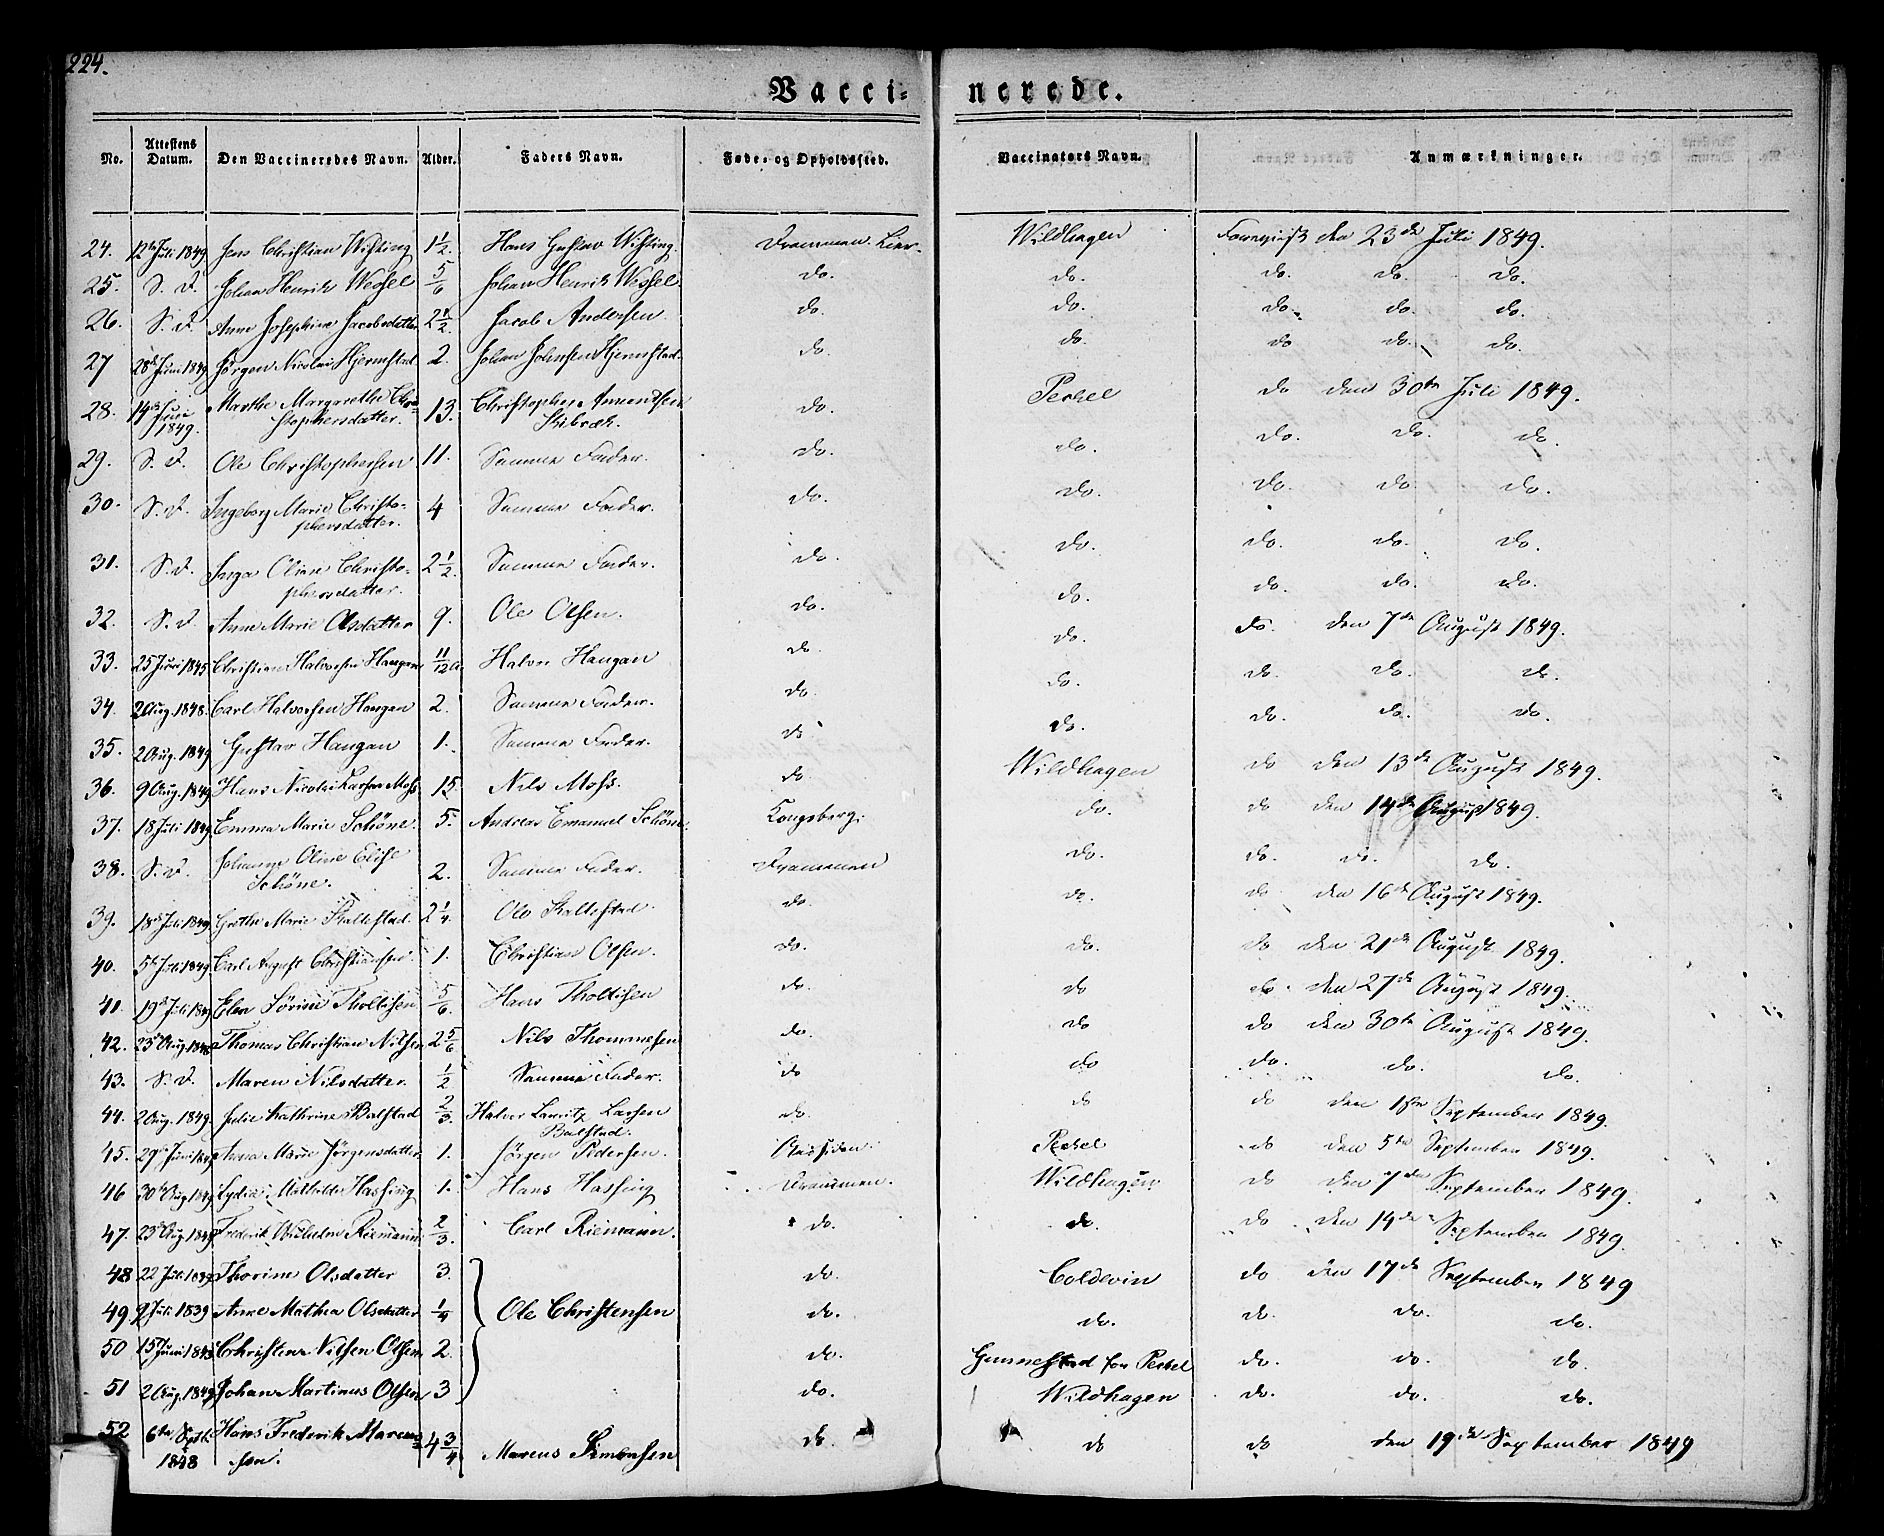 224.
Vacci- nerede.
No. Attestens Datum. Den Vaccineredes Navn. Alder. Faders Navn. Føde- og Opholdssted. Vaccinators Navn. Anmærkninger.
24. 12te Juli 1849 Jens Christian Wisting 1 1/2. Hans Gustav Wisting. Drammen. Lier. Wildhagen Forevist den 23de Juli 1849.
25. S. D. Johan Henrik Wessel 5/6 Johan Henrik Wessel do. do. do. do. do.
26. S. D. Anne Josephine Jacobsdatter 2 1/2. Jacob Andersen do. do. do. do. do.
27 28de Juni 1849 Jørgen Nicolai Hjermstad 2. Johan Johnsen Hjermstad. do. do. do do. do.
28. 14de Juni 1849. Marthe Margarethe Chri-
stophersdatter. 13. Christopher Amundsen
Skibræk. do. Peckel do den 30te Juli 1849.
29. S. D. Ole Christophersen 11. Samme Fader. do. do. do. do. do.
30. S. D. Ingeborg Marie Christo-
phersdatter. 4 Samme Fader. do. do. do. do. do.
31. S. D. Inga Oline Christo-
phersdatter. 2 1/2. Samme Fader. do. do. do. do. do.
32. S. D. Anne Marie Olsdatter 9. Ole Olsen. do. do. do. do. do.
33. 25 Juni 1845 Christian Halvorsen Haugan 11/12 Halvor Haugan do. do. do. den 7de August 1849.
34. 2 Aug. 1848. Carl Halvorsen Haugan 2. Samme Fader. do. do. do. do. do.
35. 2 Aug. 1849 Gustav Haugan 1. Samme Fader. do do. do. do. do.
36. 9 Aug. 1849 Hans Nicolai Larsen Moss 15. Nils Moss. do. Wildhagen do den 13de August 1849.
37. 18 Juli 1849 Emma Marie Schöne. 5. Andreas Emanuel Schöne. Kongsberg. do. do den 14de August 1849.
38. S. D. Johanne Oline Elise
Schöne. 2. Samme Fader. Drammen do. do. do. do.
39. 18de Juli 1849 Grethe Marie Skallestad. 2 1/4. Ole Skallestad. do. do. do den 16de August 1849.
40. 5te Juli 1849 Carl August Christiansen. 1. Christian Olsen. do. do. do den 21de August 1849.
41. 19de Juli 1849 Elen Sørine Tholtisen 5/6. Hans Tholtisen do. do do. den 27de August 1849.
42. 23de Aug 1848 Thomas Christian Nilsen 2 5/6 Nils Thommesen do. do do den 30te August 1849.
43. S. D. Maren Nilsdatter. 1/2 Samme Fader. do do do. do. do.
44. 2 Aug. 1849. Julie Kathrine Balstad 2/3. Halvor Lauritz Larsen
Balstad. do. do do den 1ste September 1849.
45. 29de Juni 1849 Anna Marie Jørgensdatter 1. Jørgen Pedersen. Aassiden. Peckel do den 5te September 1849.
46 30te Aug 1849 Lydia Mathilde Hassing 1. Hans Hassing Drammen. Wildhagen do den 7de September 1849.
47. 23de Aug 1849 Frederik Wilhelm Riemann 2/3. Carl Riemann. do. do. do den 14de September 1849.
48 22 Juli 1839 Thorine Olsdatter 3. do. Coldevin do den 17de September 1849
49. 9 Juli 1839 Anne Mathea Olsdatter 1/4 Ole Christensen do. do. do. do. do.
50 15 Juni 1843 Christian Nilsen Olsen 2. do. Gunnestad for Peckel do. do. do.
51 2 Aug. 1849 Johan Martinus Olsen 3 do. Wildhagen do. do. do.
52 6te Septbr 1848 Hans Frederik Marcus-
sen. 4 3/4 Marcus Simensen do. do do den 19de September 1849